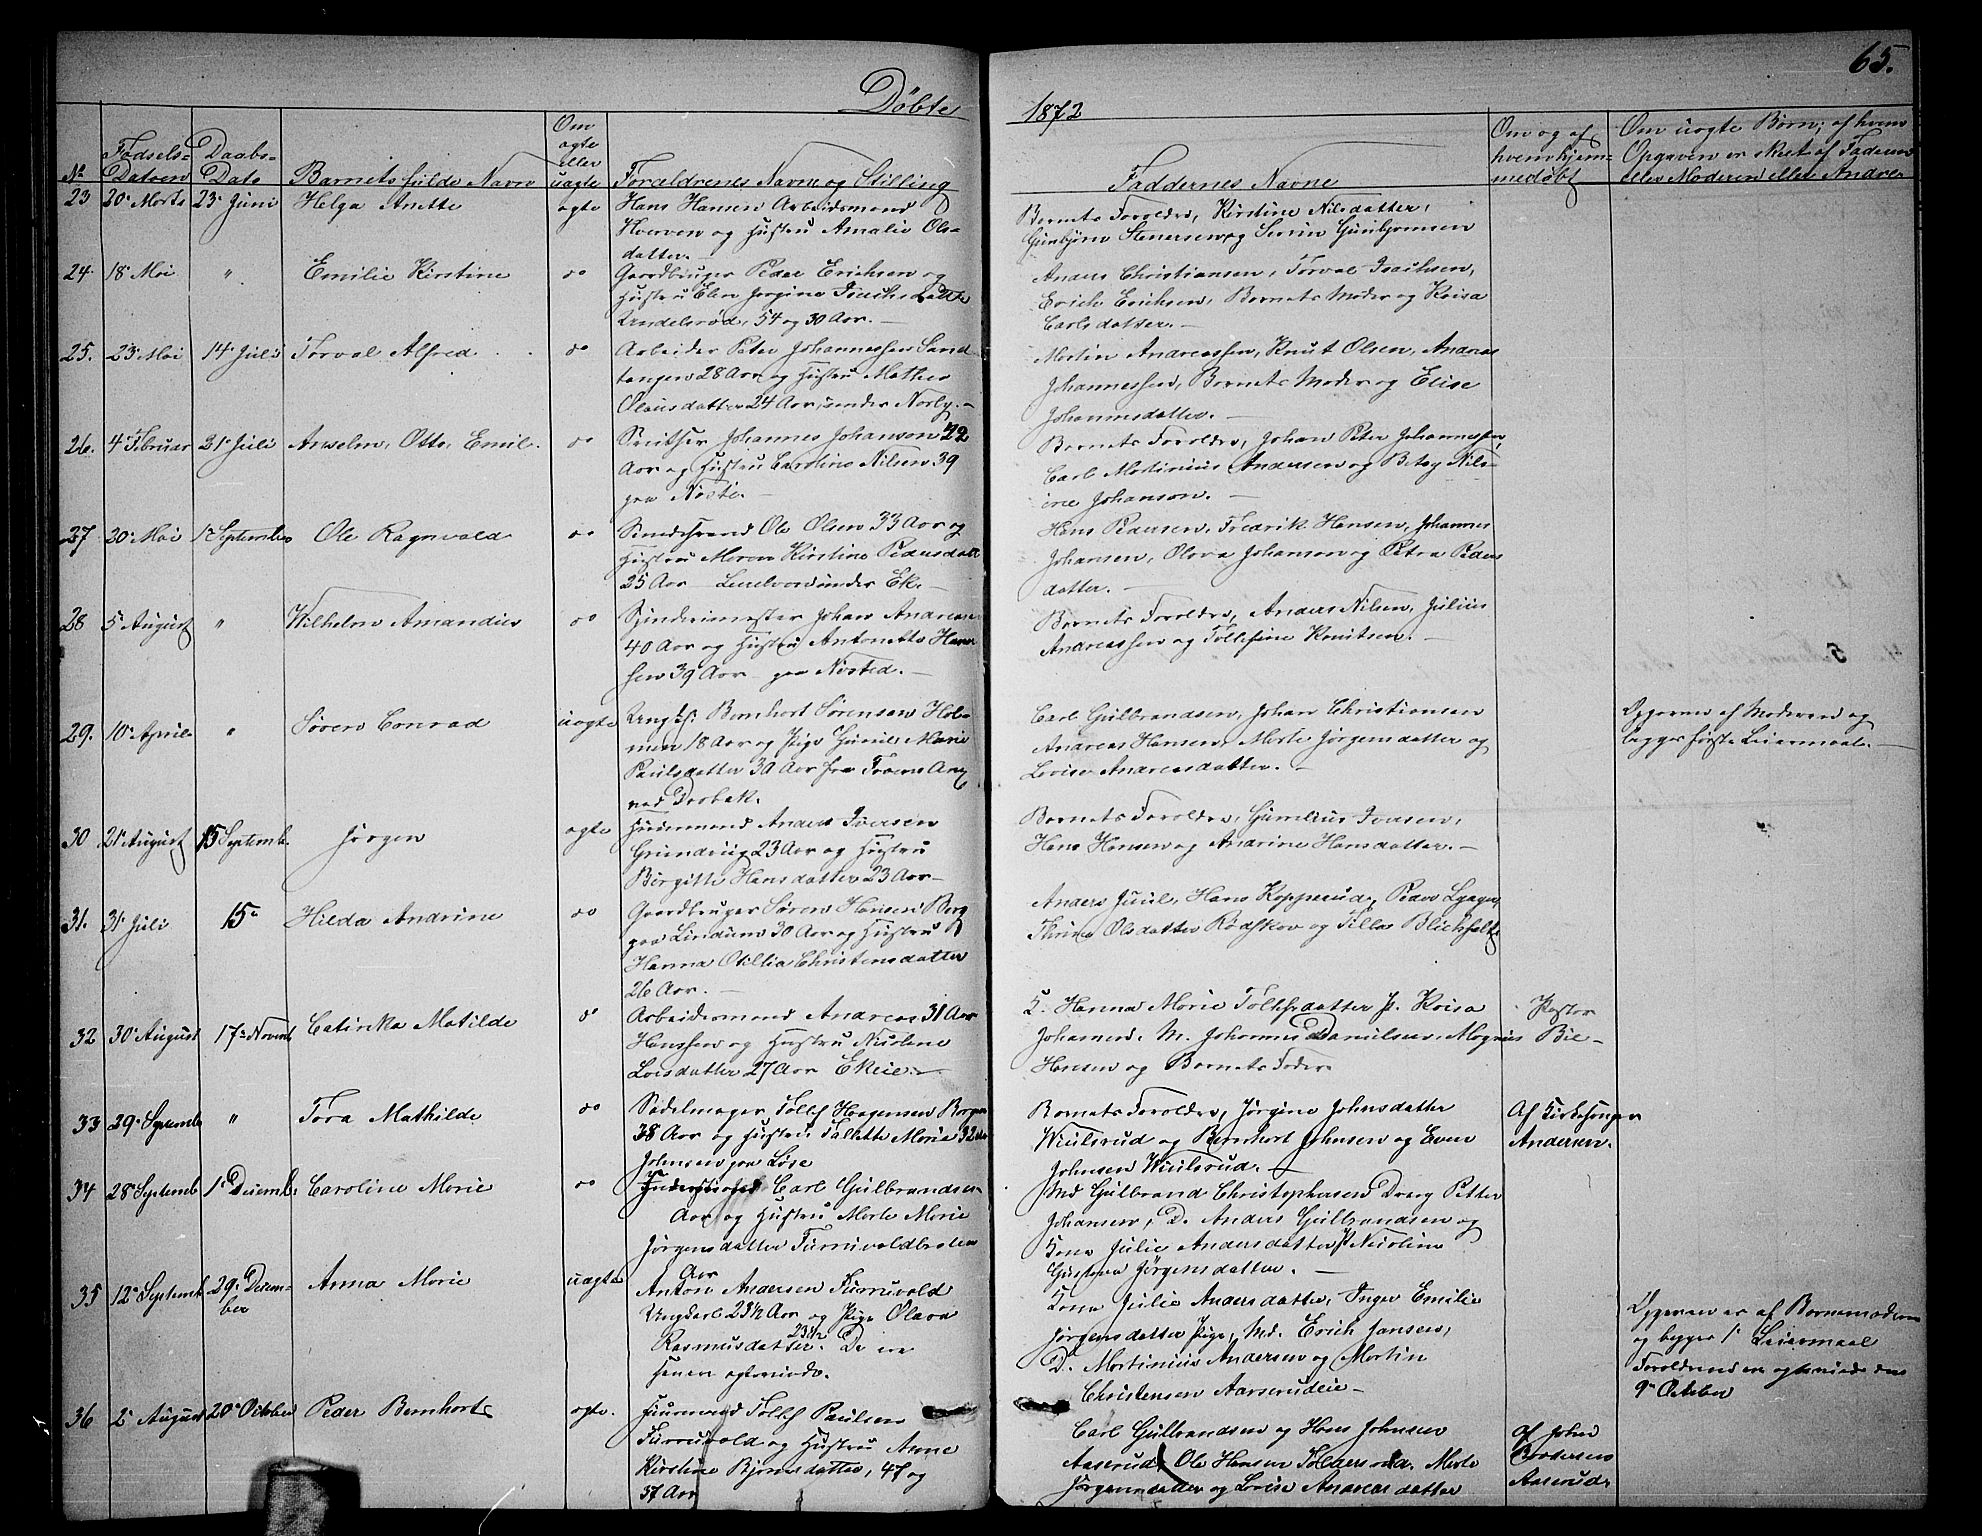 65.
Døbte
1872
No
Fødsels-
Datoen
Daabs-
Dato
Barnets fulde Navn
Om
ægte
eller
uægte
Forældrenes Navn og Stilling
Faddernes Navne
Om og af
hvem hjem-
medøbt
Om uægte Børn; af hvem
Opgaven er skeet af Faderen
eller Moderen eller Andre
23 20. Marts 23. Juni Helga Anette ægte Hans Hansen Arbeidsmand
og Hustru Amalie Ols-
datter.
Barnets Forældre, Kirstine Nilsdatter,
Gunbjørn Stenersen og Gunbjørnsen
24. 18. Mai " Emilie Kirstine do Gaardbruger Peder Erichsen og
Hustru Elen Jørgine Isachsdatte
54 og 30 Aar. —
Anders Christiansen, Torval Isachsen,
Erich Erichsen, Barnets Moder og
Carlsdatter. —
25. 23. Mai 14. Juli Torval Alfred do Arbeider Peter Johannessen Sand-
tangen 28 Aar og Hustru Mathea
Olausdatter 24 Aar, under Norby. —
Martin Andreassen, Knut Olsen, Andreas
Johannessen, Barnets Moder og Elise
Johannesdatter. —
26. 4. Februar 21. Juli Anselm, Otto, Emil. do Johannes Johanson 42
Aar og Hustru Caroline Nilsen 39
paa
Barnets Forældre, Johan Peter Johannessen,
Carl Martinius Andersen og Betsy Nils-
ine Johanson. —
27 20. Mai 1. September Ole Ragnvald do Ole Olsen 33 Aar og
Hustru Maren Kirstine Pedersdatt
25 Aar under Ek. —
Hans Pedersen, Fredrik Hansen, Johannes
Johansen, Olava Johansen og Petra Peders
datter. —
28 5. August " Wilhelm Amandus do Johan Andreasen
40 Aar og Hustru Antonette Han-
sen 39 Aar paa Nøsted. —
Barnets Forældre, Anders Nilsen, Julius
Andreassen og Tollefine Knutsen. —
29. 10. April " Søren Conrad uægte Ungk. Bernhart Sørensen Hol-
men 18 Aar og Pige Gunild Marie
Paulsdatter 30 Aar fra
ved Drøbak.
Carl Gulbrandsen, Johan Christiansen
Andreas Hansen, Marte Jørgensdatter og
Lovise Andreasdatter. —
Opgaven af Moderen og
begges første Leiermaal. —
30 21. August 15 Septemb. Jørgen ægte Huusmand Anders Iversen
23 Aar og Hustru
Birgitte Hansdatter 23 Aar —
Barnets Forældre, Iversen,
Hans Hansen og Andrine Hansdatter. —
31. 31. Juli 15. Hilda Andrine do Gaardbruger Søren Hansen Berg
paa Lindum 30 Aar og Hustru
Hanna Otillia Christensdatter
26 Aar. —
Anders Juul, Hans Kopperud, Peder
Olsdatter Rødskov og Tilla Blichfeldt
32 30. August 17. Novemb Catinka Matilde do Arbeidsmand Andreas 31 Aar
Hanssen og Hustru Nicoline
Larsdatter 27 Aar Ekeie. —
K. Hanna Marie Tollefsdatter P.
M. Johannes Danielsen, Magnus
Hansen og Barnets Fader
Pastor
Bie —
33 29. Septemb " Tora Mathilde do Sadelmager Tollef Hagensen Borgen
38 Aar og Hustru Tallette Marie 32 Aar
Johnsen paa Løse
Barnets Forældre, Jørgine Johnsdatter
Wiulsrud og Bernhart Johnsen og Even
Johnsen Wiulsrud. —
Af Kirkesanger
Andersen.
34 28. Septemb 1. Decemb. Caroline Marie do Carl Gulbrandsen
Aar og Hustru Marte Marie
Jørgensdatter Furruvaldbraten
Aar
Md Gulbrand Christophersen Dreng Petter
Johansen, D. Anders Gulbrandsen og
Kone Julie Andersdatter P Nicoline
Gustava Jørgensdatter. —
35 12. Septemb 29. Decem-
ber Anna Marie uægte Anton Andersen Furruvald
Ungkarl 23½ Aar og Pige Olava
Rasmusdatter 23½. De ere
senere ægteviede.
Kone Julie Andersdatter, Inger Emilie
Jørgensdatter Pige, Md. Erich Jansen,
D. Martinius Andersen og Martin
Christensen Aaserudeie —
Opgaven er af Barnemoderen
og begges 1. Leiermaal
Forældrene ere ægteviede den
9. October
36 2. August 20. October Peder Bernhart ægte. Huusmand Tollef Paulsen
Furruvald og Hustru Anne
Kirstine Bjørnsdatter, 47 og
37 Aar
Carl Gulbrandsen og Hans Johnsen
Aaserud, Ole Hansen Marte
Jørgensdatter og Lovise Andreasdatter
af Johan
Aaserud.